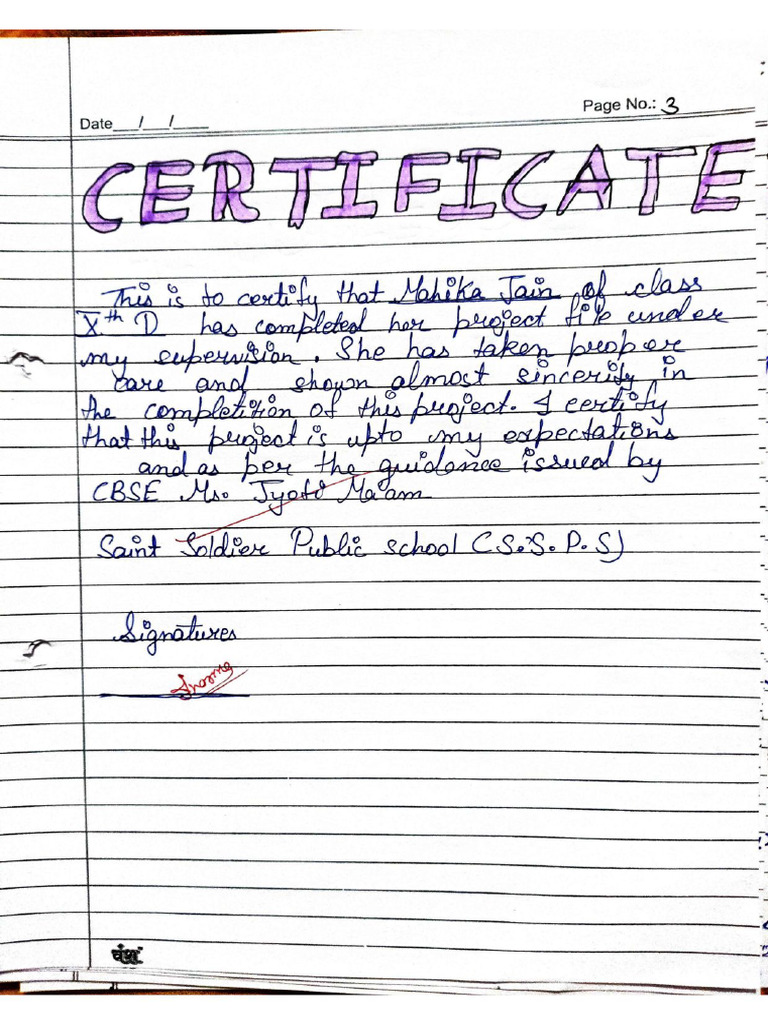 Page No.: 3
Date / /
CERTIFICATE
This is to certify that Mahika Jain of class
Xth D has completed her project file under
my supervision. She has taken proper
care and shown almost sincerity in
the completition of this project. I certify
that this project is upto my expectations
and as per the guidance issued by
CBSE Ms. Jyoti Ma'am
Saint Soldier Public school (S.S.P.S)
Signatures